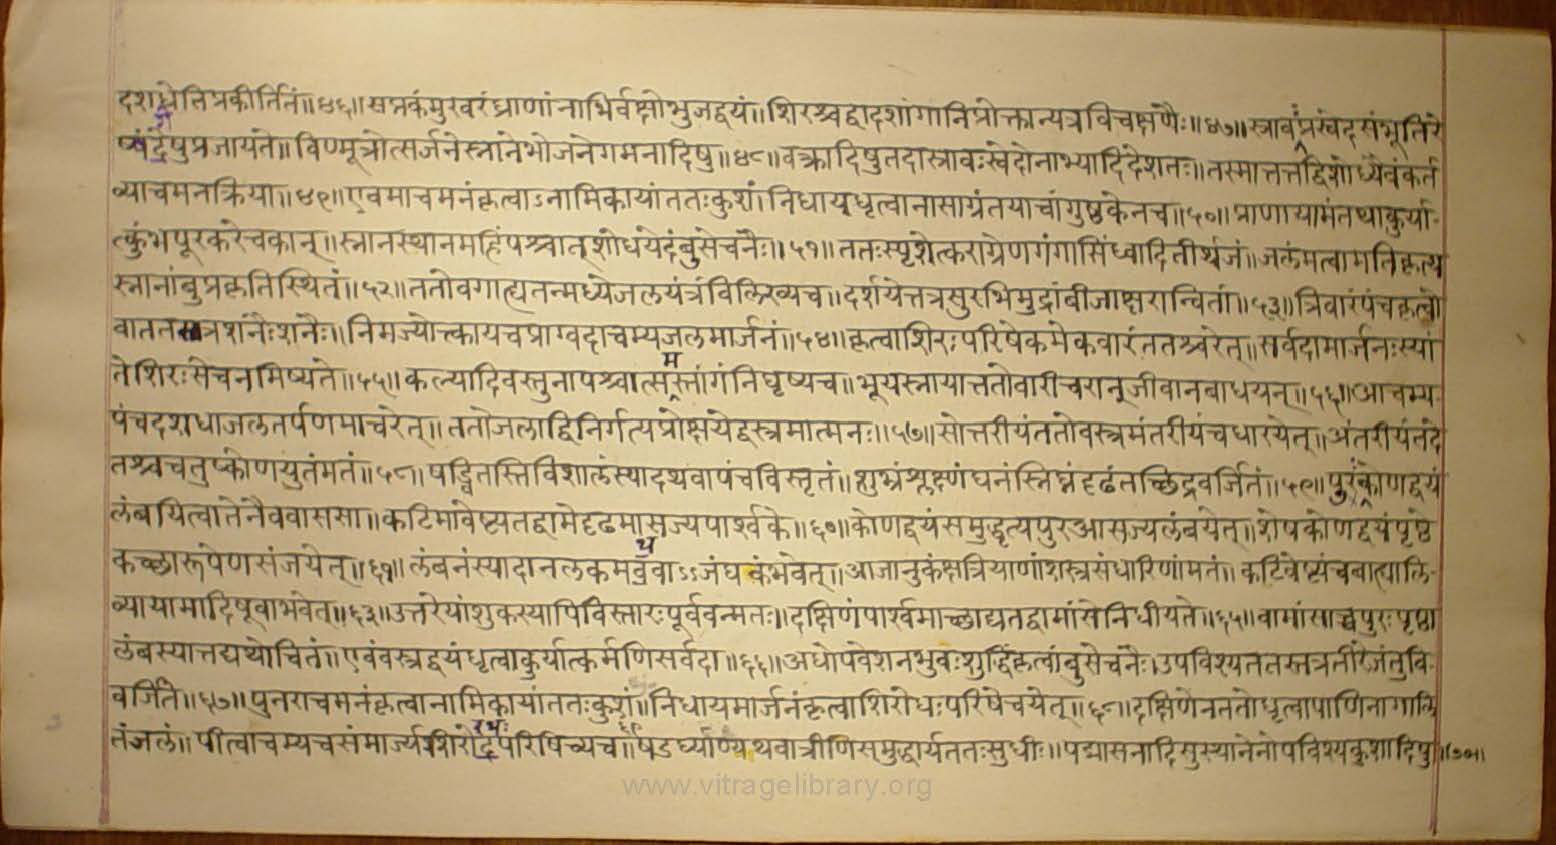 दशधेतिप्रकीर्तितं॥४६॥सन्नकंमुखरंघ्राणांनाभिर्वक्षोभुजद्वयं॥शिरश्चद्वादशांगानिप्रोक्तान्यत्रविचक्षणैः॥४७॥स्त्रावंप्रस्वेदसंभूतिरे
ष्वंगेषुप्रजायंते॥विण्मूत्रोत्सर्जनेस्नानेभोजनेगमनादिषु॥४८॥वक्त्रादिषुतदास्त्रावःस्वेदोनाभ्यादिदेशतः॥तस्मात्तत्तद्विशोध्यैवंकर्त
व्याचमनक्रिया॥४९॥एवमाचमनंकृत्वाऽनामिकायांततःकुशं।निधायधृत्वानासाग्रंतयाचांगुष्ठकेनच॥५०॥प्राणायामंतथाकुर्या-
त्कुंभपूरकरेचकान्॥स्नानस्थानमहिंपश्चात्शोधयेदंबुसेचनैः॥५१॥ततःस्पृशेत्कराग्रेणगंगासिंध्वादितीर्थजं॥जलंमत्वामतिकृत्य
स्नानांबुप्रकृतिस्थितं॥५२॥ततोवगाह्यतन्मध्येजलयंत्रंविलिख्यच॥दर्शयेत्तत्रसुरभिमुद्रांबीजाक्षरान्वितां॥५३॥त्रिवारंपंचकृत्वो
वाततस्तत्रशनैःशनैः॥निमज्योत्कायचप्राग्वदाचम्यजलमार्जनं॥५४॥कृत्वाशिरःपरिषेकमेकवारंततश्चरेत्॥सर्वदामार्जनःस्यां
तेशिरःसेचनमिष्यते॥५५॥कल्यादिवस्तुनापश्चात्समस्तांगंनिघृष्यच॥भूयस्नायात्ततोवारीचरान्जीवानबाधयन्॥५६॥आचम्य-
पंचदशधाजलतर्पणमाचरेत्॥ततोजलाद्विनिर्गत्यप्रोक्षयेद्वस्त्रमात्मनः॥५७॥सोत्तरीयंततोवस्त्रमंतरीयंचधारयेत्॥अंतरीयंतदं
तश्चचतुष्कोणयुतंमतं॥५८॥षड्वितस्तिविशालंस्यादथवापंचविस्तृतं॥शुभ्रंश्लक्ष्णंघनंस्निग्धंदृढंतच्छिद्रवर्जितं॥५९॥पुरःकोणद्वयं
लंबयित्वातेनैववाससा॥कटिमावेष्ट्यतद्वामेदृढमासज्यपार्श्वके॥६०॥कोणद्वयंसमुद्धृत्यपुरआसज्यलंबयेत्॥शेषकोणद्वयंपृष्ठे
कच्छारूपेणसंजयेत्॥६१॥लंबनंस्यादानलकमथवाऽऽजंघकंभवेत्॥आजानुकंक्षत्रियाणांशस्त्रसंधारिणांमतं॥कटिवेष्ट्यंचबाह्यालि-
व्यायामादिषूवाभवेत्॥६३॥उत्तरेयांशुकस्यापिविस्तारःपूर्ववन्मतः॥दक्षिणंपार्श्वमाच्छाद्यतद्वामांसेनिधीयते॥६५॥वामांसाच्चपुरःपृष्ठा
लंबस्यात्तद्यथोचितं॥एवंवस्त्रद्वयंधृत्वाकुर्यात्कर्मणिसर्वदा॥६६॥अधोपवेशनभुवःशुद्धिंकृत्वांबुसेचनैः।उपविश्यततस्तत्रतीरेजंतुवि-
वर्जिते॥६७॥पुनराचमनंकृत्वानामिकायांततःकुशं॥निधायमार्जनंकृत्वाशिरोधःपरिषेचयेत्॥६८॥दक्षिणेनततोधृत्वापाणिनागालि
तंजलं॥पीत्वाचम्यचसंमार्ज्यशिरोरधःपरिषिच्यच॥६९॥षडर्घ्याण्यथवात्रीणिसमुद्धार्यततःसुधीः॥पद्मासनादिसुस्थानेनोपविश्यकुशादिषु॥७०॥
www.vitragelibrary.org